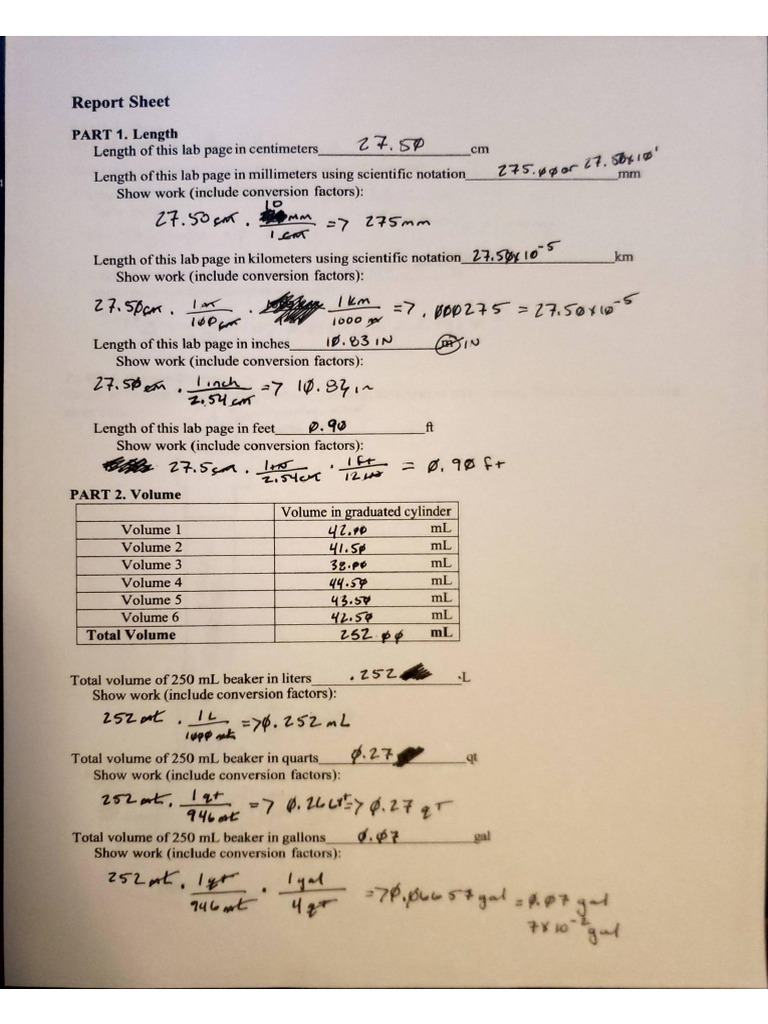 Report Sheet
PART 1. Length
Length of this lab page in centimeters 27.50 cm
Length of this lab page in millimeters using scientific notation 275.00 or 27.50x10¹ mm
Show work (include conversion factors):
27.50 cm · 10 mm / 1 cm => 275 mm
Length of this lab page in kilometers using scientific notation 27.50x10⁻⁵ km
Show work (include conversion factors):
27.50 cm · 1 m / 100 cm · 1 km / 1000 m => .000275 = 27.50x10⁻⁵
Length of this lab page in inches 10.83 IN m IN
Show work (include conversion factors):
27.50 cm · 1 inch / 2.54 cm => 10.83 in
Length of this lab page in feet 0.90 ft
Show work (include conversion factors):
27.5 cm · 1 in / 2.54 cm · 1 ft / 12 in = 0.90 ft
PART 2. Volume
Volume in graduated cylinder
Volume 1 42.00 mL
Volume 2 41.50 mL
Volume 3 38.00 mL
Volume 4 44.50 mL
Volume 5 43.50 mL
Volume 6 42.50 mL
Total Volume 252.00 mL
Total volume of 250 mL beaker in liters .252 L
Show work (include conversion factors):
252 mL · 1 L / 1000 mL => 0.252 mL
Total volume of 250 mL beaker in quarts 0.27 qt
Show work (include conversion factors):
252 mL · 1 qt / 946 mL => 0.266 qt => 0.27 qt
Total volume of 250 mL beaker in gallons 0.07 gal
Show work (include conversion factors):
252 mL · 1 qt / 946 mL · 1 gal / 4 qt => 0.06657 gal = 0.07 gal
7x10⁻² gal